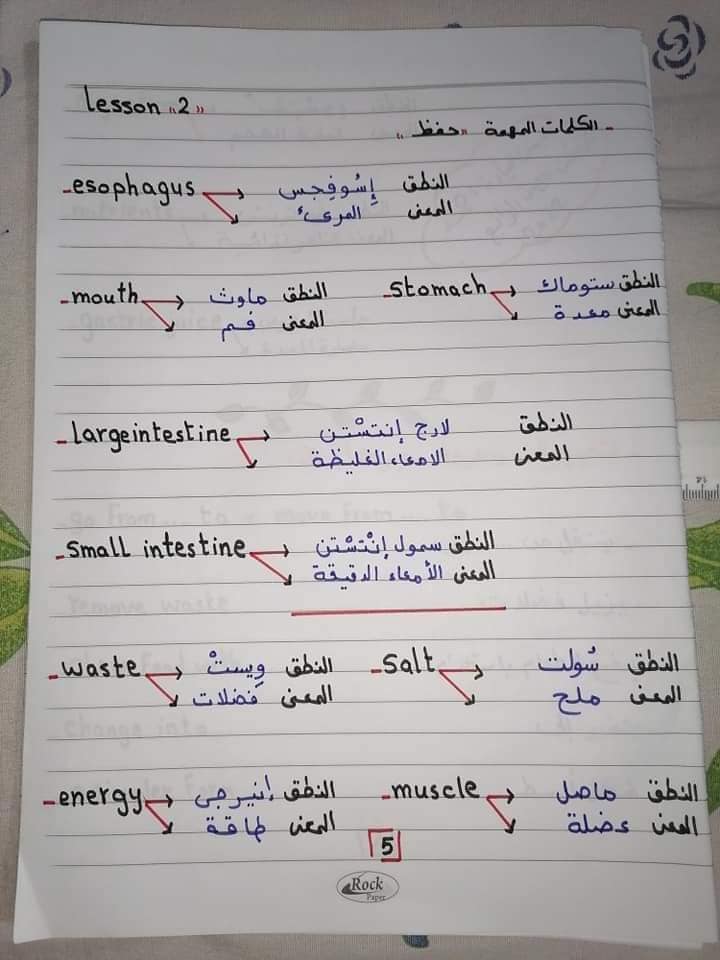 Lesson "2"
- الكلمات المهمة "حفظ"
- esophagus النطق إِسُوفِجس
المعنى المرىء
- mouth النطق ماوث
المعنى فم
- Stomach النطق ستوماك
المعنى معدة
- largeintestine النطق لارج إنتسْتن
المعنى الامعاء الغليظة
- small intestine النطق سمول إنْتسْتن
المعنى الأمعاء الدقيقة
- waste النطق وِيستْ
المعنى فضلات
- Salt النطق سُولت
المعنى ملح
- energy النطق إنيرجى
المعنى طاقة
- muscle النطق ماصل
المعنى عضلة
5
Rock
Paper